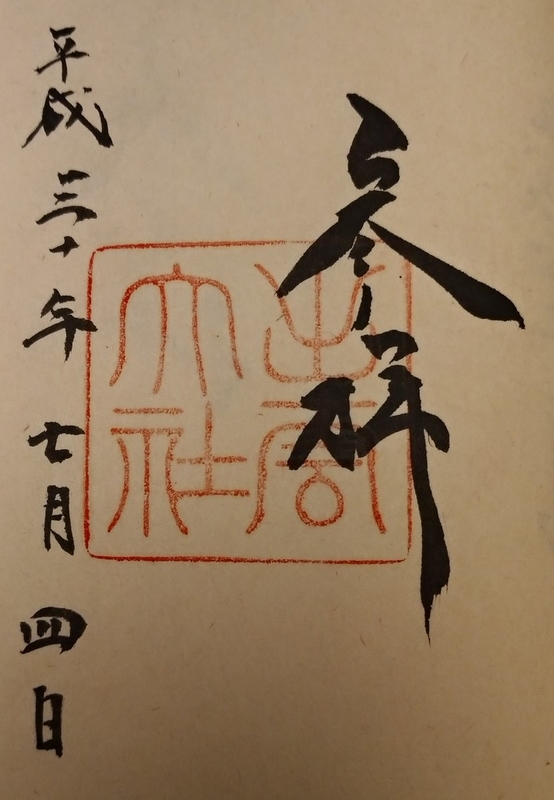 参拝
出雲
大社
平成三十年七月四日